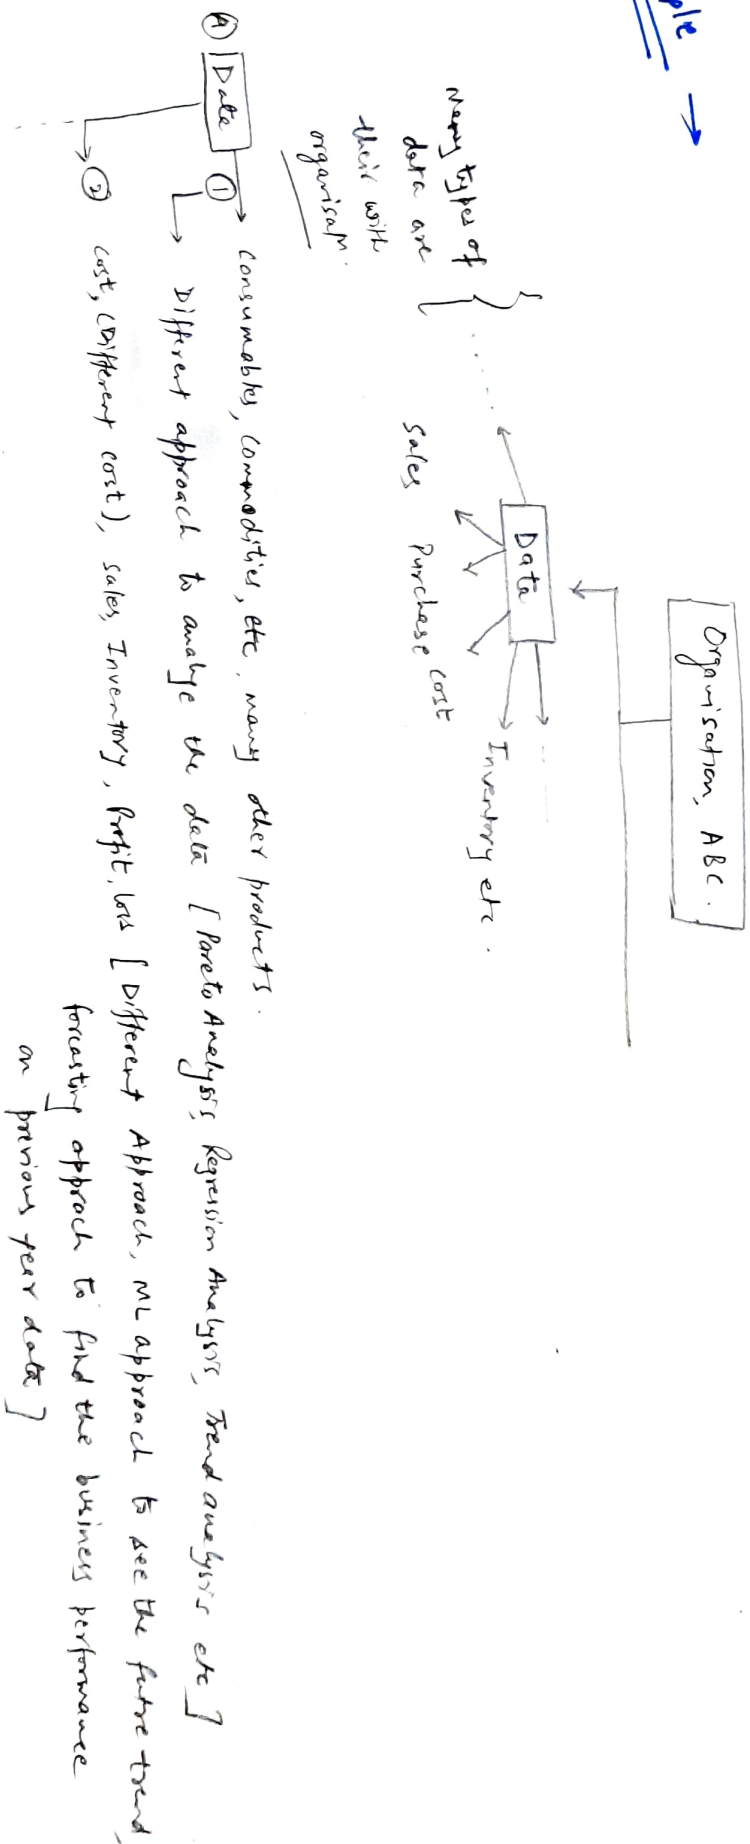 ple →
Organisation, ABC.
Data
Many types of
data are
their with
organisatn.
Sales Purchase Cost
Inventory etc.
(A) Data
(1) Consumables, Commodities, etc, many other products.
Different approach to analyse the data [Pareto Analysis, Regression Analysis, Trend analysis etc]
(2) Cost, (Different cost), Sales, Inventory, Profit, loss [Different Approach, ML approach to see the future trend,
forcasting approch to find the business performance
on previous year data]